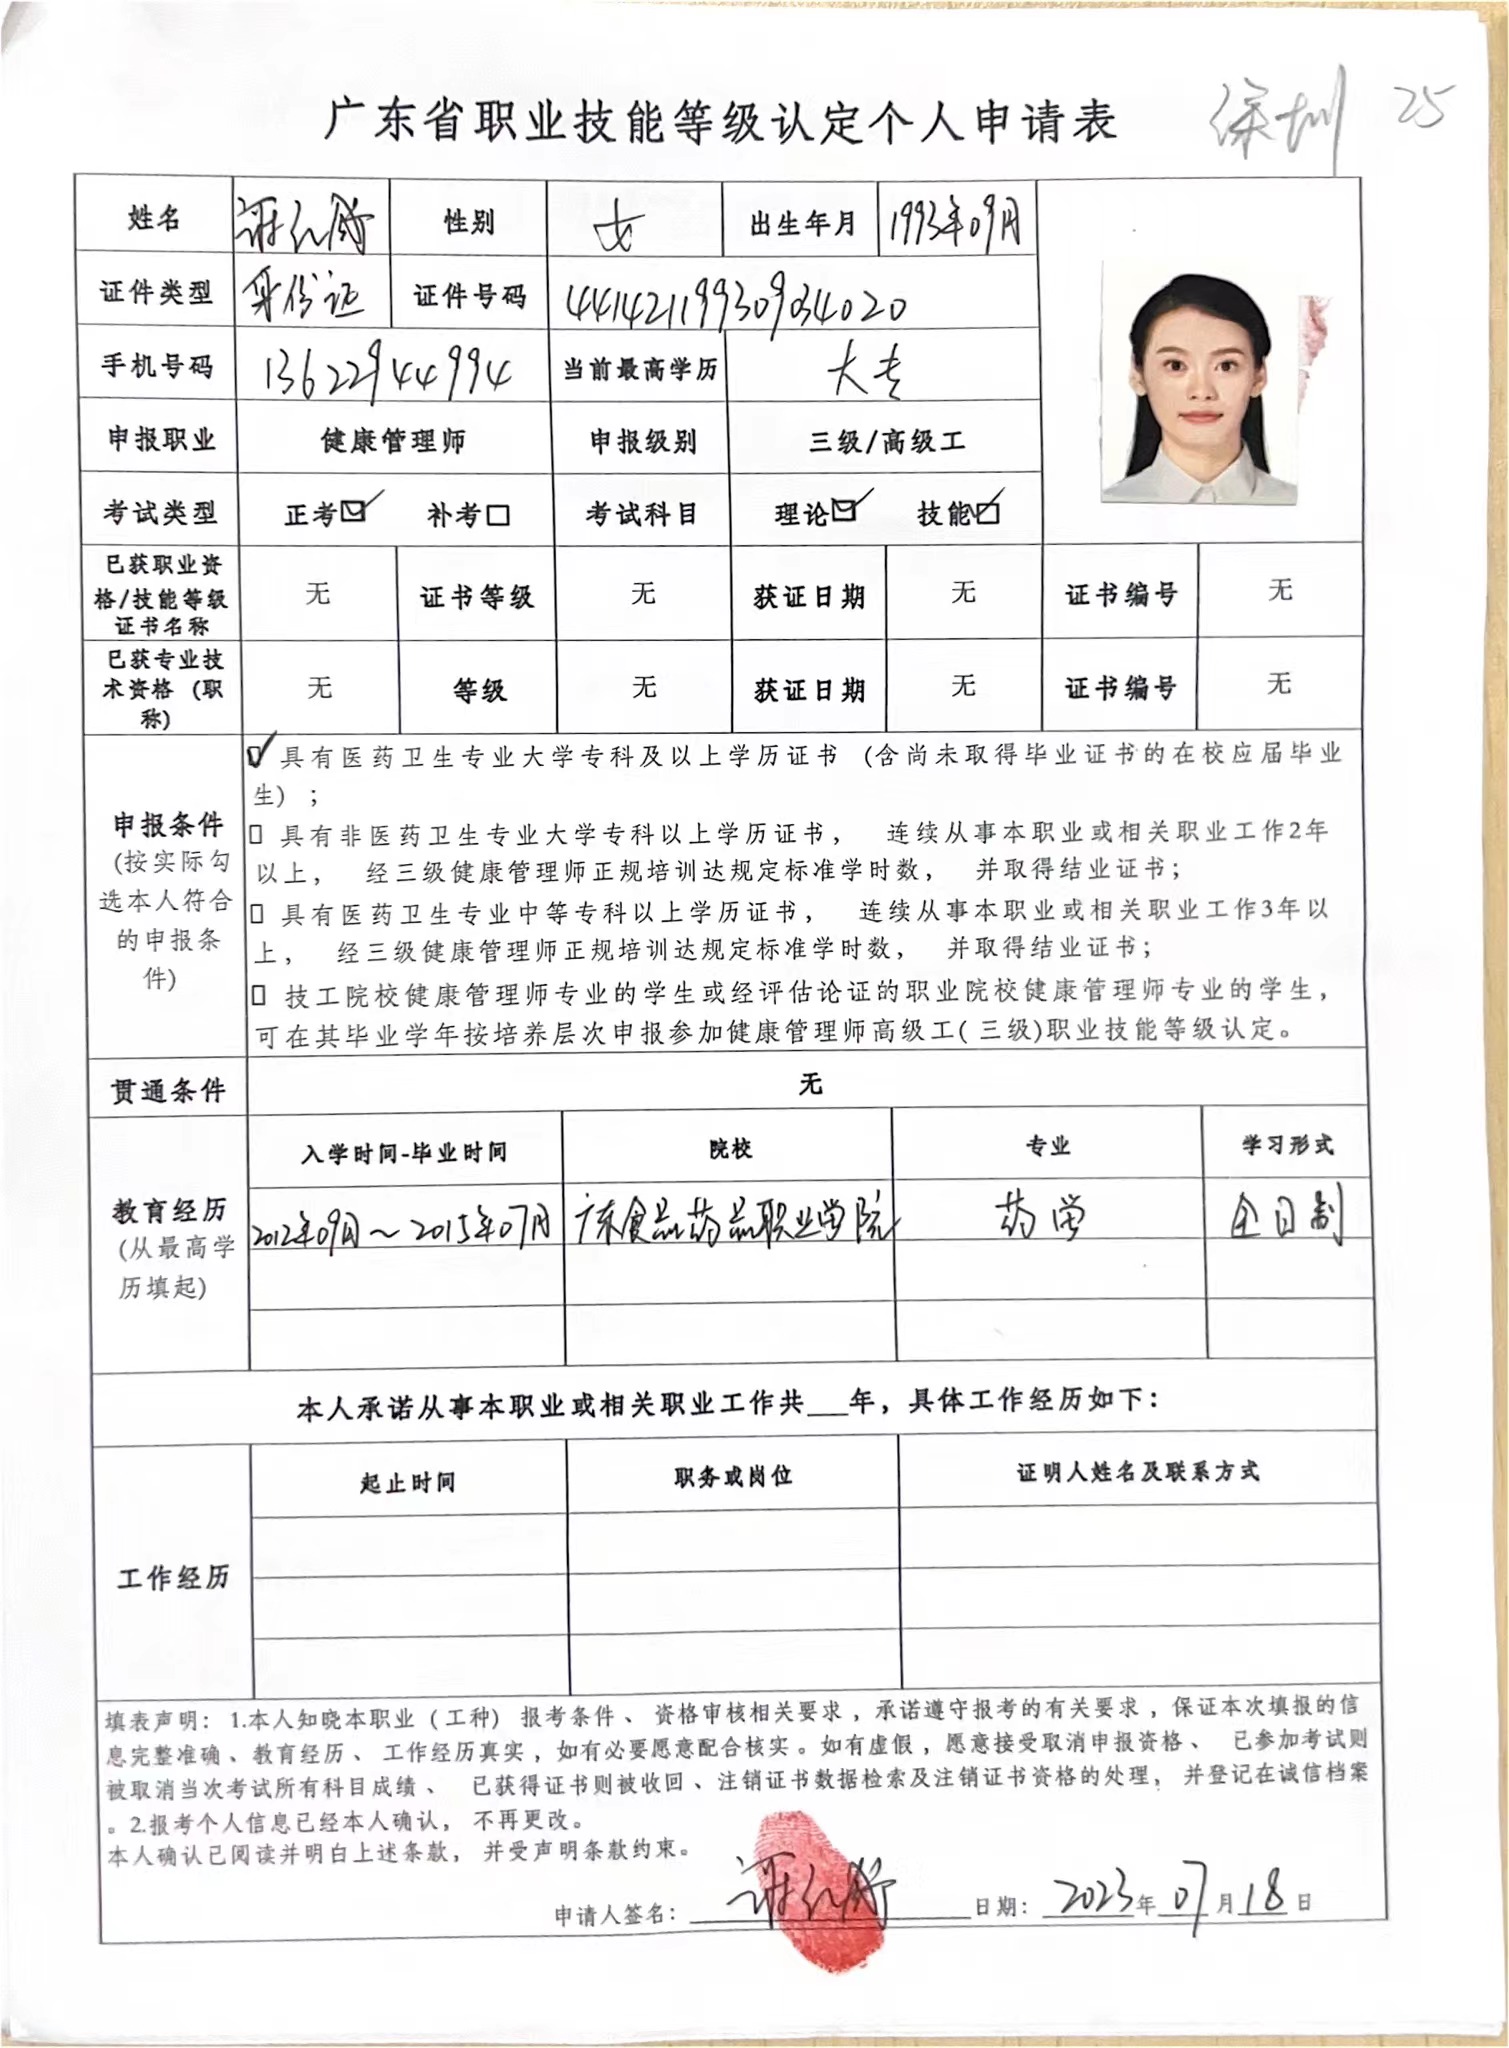 广东省职业技能等级认定个人申请表 深圳 25
姓名 谢 性别 女 出生年月 1993年09月
证件类型 身份证 证件号码 441421199309034020
手机号码 13622944994 当前最高学历 大专
申报职业 健康管理师 申报级别 三级/高级工
考试类型 正考☑ 补考☐ 考试科目 理论☑ 技能☑
已获职业资
格/技能等级
证书名称 无 证书等级 无 获证日期 无 证书编号 无
已获专业技
术资格(职
称) 无 等级 无 获证日期 无 证书编号 无
申报条件
(按实际勾
选本人符合
的申报条
件)
☑ 具有医药卫生专业大学专科及以上学历证书(含尚未取得毕业证书的在校应届毕业
生);
☐ 具有非医药卫生专业大学专科以上学历证书, 连续从事本职业或相关职业工作2年
以上, 经三级健康管理师正规培训达规定标准学时数, 并取得结业证书;
☐ 具有医药卫生专业中等专科以上学历证书, 连续从事本职业或相关职业工作3年以
上, 经三级健康管理师正规培训达规定标准学时数, 并取得结业证书;
☐ 技工院校健康管理师专业的学生或经评估论证的职业院校健康管理师专业的学生,
可在其毕业学年按培养层次申报参加健康管理师高级工(三级)职业技能等级认定。
贯通条件 无
教育经历
(从最高学
历填起)
入学时间-毕业时间 院校 专业 学习形式
2012年09月~2015年07月 广东食品药品职业学院 药学 全日制
本人承诺从事本职业或相关职业工作共___年,具体工作经历如下:
工作经历
起止时间 职务或岗位 证明人姓名及联系方式
填表声明: 1.本人知晓本职业(工种)报考条件、资格审核相关要求,承诺遵守报考的有关要求,保证本次填报的信
息完整准确、教育经历、工作经历真实,如有必要愿意配合核实。如有虚假,愿意接受取消申报资格、 已参加考试则
被取消当次考试所有科目成绩、 已获得证书则被收回、注销证书数据检索及注销证书资格的处理, 并登记在诚信档案
。2.报考个人信息已经本人确认, 不再更改。
本人确认已阅读并明白上述条款, 并受声明条款约束。
申请人签名: 谢 日期: 2023年07月18日